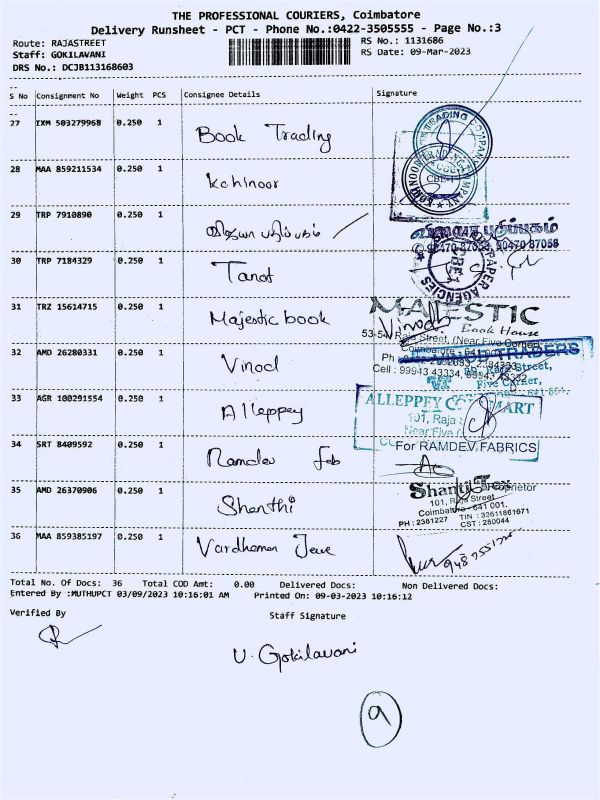 THE PROFESSIONAL COURIERS, Coimbatore
Delivery Runsheet - PCT - Phone No.:0422-3505555 - Page No.:3
Route: RAJASTREET RS No.: 1131686
Staff: GOKILAVANI RS Date: 09-Mar-2023
DRS No.: DCJB113168603
S No Consignment No Weight PCS Consignee Details Signature
27 IXM 503279968 0.250 1 Book Trading
28 MAA 859211534 0.250 1 Kohinoor
29 TRP 7910890 0.250 1 விஜயா பதிப்பகம்
30 TRP 7184329 0.250 1
31 TRZ 15614715 0.250 1 Majestic book
32 AMD 26280331 0.250 1 Vinod
33 AGR 100291554 0.250 1 Alleppey
34 SRT 8409592 0.250 1 Ramdev Fab
35 AMD 26370906 0.250 1 Shanthi
36 MAA 859385197 0.250 1 Vardhaman
TRADING COMPANY
CBE-1
பதிப்பகம்
90470 87058
PAPER AGENCIES
MAJESTIC
Book House
Vinod
Raja Street, (Near Five Corner)
Coimbatore - 641 001.
Cell : 99943 43334,
VINOD TRADERS
Street,
Five Corner,
ALLEPPEY MART
101, Raja
Near Five
For RAMDEV FABRICS
Shanti Tex
Proprietor
101, Raja Street
Coimbatore - 641 001.
PH : 2381227 TIN : 33611861671
CST : 280044
Total No. Of Docs: 36 Total COD Amt: 0.00 Delivered Docs: Non Delivered Docs:
Entered By :MUTHUPCT 03/09/2023 10:16:01 AM Printed On: 09-03-2023 10:16:12
Verified By Staff Signature
U. Gokilavani
9